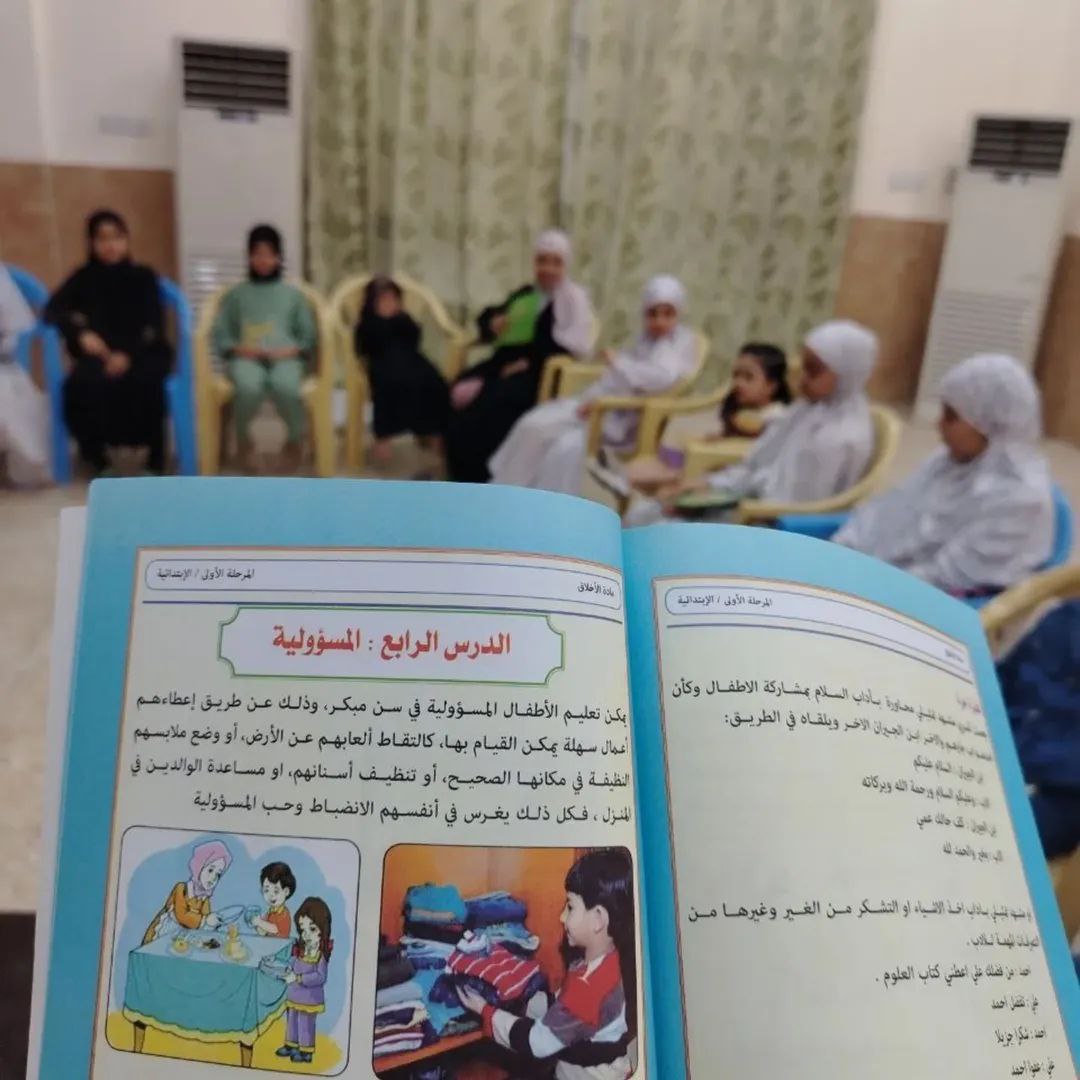 المرحلة الأولى / الإبتدائية
مادة الأخلاق
الدرس الرابع : المسؤولية
يمكن تعليم الأطفال المسؤولية في سن مبكر، وذلك عن طريق إعطاءهم
أعمال سهلة يمكن القيام بها، كالتقاط ألعابهم عن الأرض، أو وضع ملابسهم
النظيفة في مكانها الصحيح، أو تنظيف أسنانهم، او مساعدة الوالدين في
المنزل ، فكل ذلك يغرس في أنفسهم الانضباط وحب المسؤولية
المرحلة الأولى / الإبتدائية
مشهد تمثيلي محاورة بآداب السلام بمشاركة الاطفال وكأن
والاخر ابن الجيران الاخر ويلقاه في الطريق:
ابن الجيران : السلام عليكم
الاب : وعليكم السلام ورحمة الله وبركاته
ابن الجيران : كيف حالك عمي
الاب : بخير والحمد لله
او مشهد تمثيلي بآداب اخذ الاشياء او التشكر من الغير وغيرها من
المهمة
احمد : من فضلك علي اعطني كتاب العلوم .
علي : تفضل احمد
أحمد : شكرا جزيلا
علي : عفوا احمد